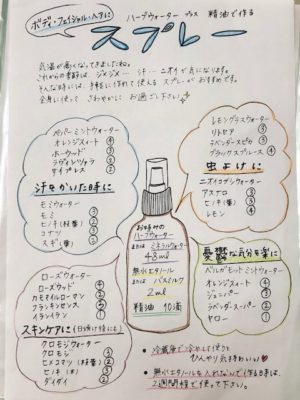 ボディ・フェイシャル・ヘアに
ハーブウォーター プラス 精油で作る
スプレー
気温が高くなってきましたね。
これからの季節は、ジメジメ… 汗… ニオイが気になります。
そんな時には、手軽に作れて使える スプレーがおすすめです。
全身に使って さわやかに お過ごし下さい。
ペパーミントウォーター
オレンジスイート ④
ホーウッド ③
ラヴィンツァラ ②
サイプレス ①
汗をかいた時に
モミウォーター
モミ ③
ヒノキ(枝葉) ③
コナツ
スギ(葉)
レモングラスウォーター
リトセア ③
ラベンダースピカ
ブラックスプルース ④
虫よけに
ニオイコブシウォーター
アスナロ ③
ヒノキ(葉)
レモン ④
お好みの
ハーブウォーター
または ミネラルウォーター
48ml
無水エタノール
または バスミルク
2ml
精油 10滴
ローズウォーター
ローズウッド ④
カモマイルローマン ②
フランキンセンス
イランイラン ①
スキンケアに(日焼け後にも)
クロモジウォーター
クロモジ
ヒメコマツ(枝葉)
ヒノキ(木) ②
ダイダイ ②
憂鬱な気分を楽に
ベルガモットミントウォーター
オレンジスイート
ジュニパー
ラベンダースーパー ②
ヤロー ①
・冷蔵庫で冷やして使うと
ひんやり気持ちいい♡
・無水エタノールを入れないで作る時は、
2週間程で使って下さい。